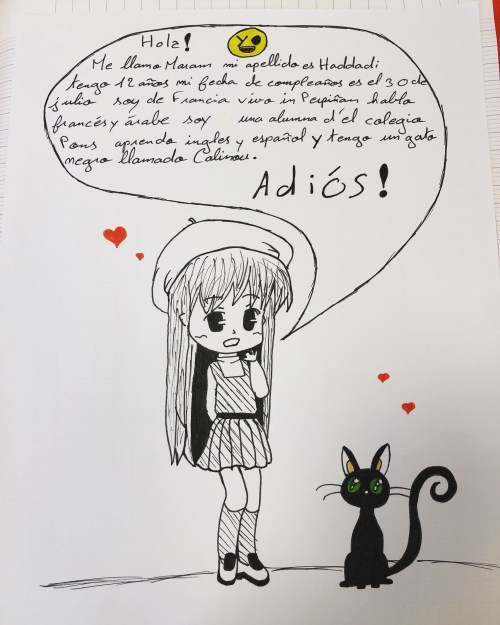 Hola!
Me llamo Maram mi apellido es Haddadi
tengo 12 años mi fecha de compleaños es el 30 de
julio soy de Francia vivo in Perpiñam hablo
francés y árabe soy una alumna d'el colegio
Pons aprendo ingles y español y tengo un gato
negro llamado Calinou.
Adiós!